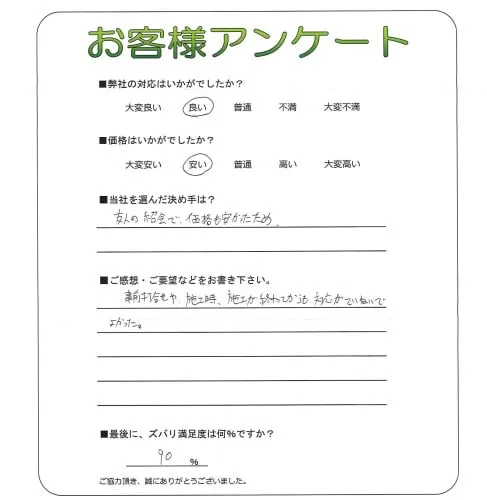 お客様アンケート
■弊社の対応はいかがでしたか？
大変良い 良い 普通 不満 大変不満
■価格はいかがでしたか？
大変安い 安い 普通 高い 大変高い
■当社を選んだ決め手は？
友人の紹介で、価格も安かたため
■ご感想・ご要望などをお書き下さい。
事前打合せや、施工時、施工が終わってからも対応がていねいで
よかった。
■最後に、ズバリ満足度は何%ですか？
90 %
ご協力頂き、誠にありがとうございました。